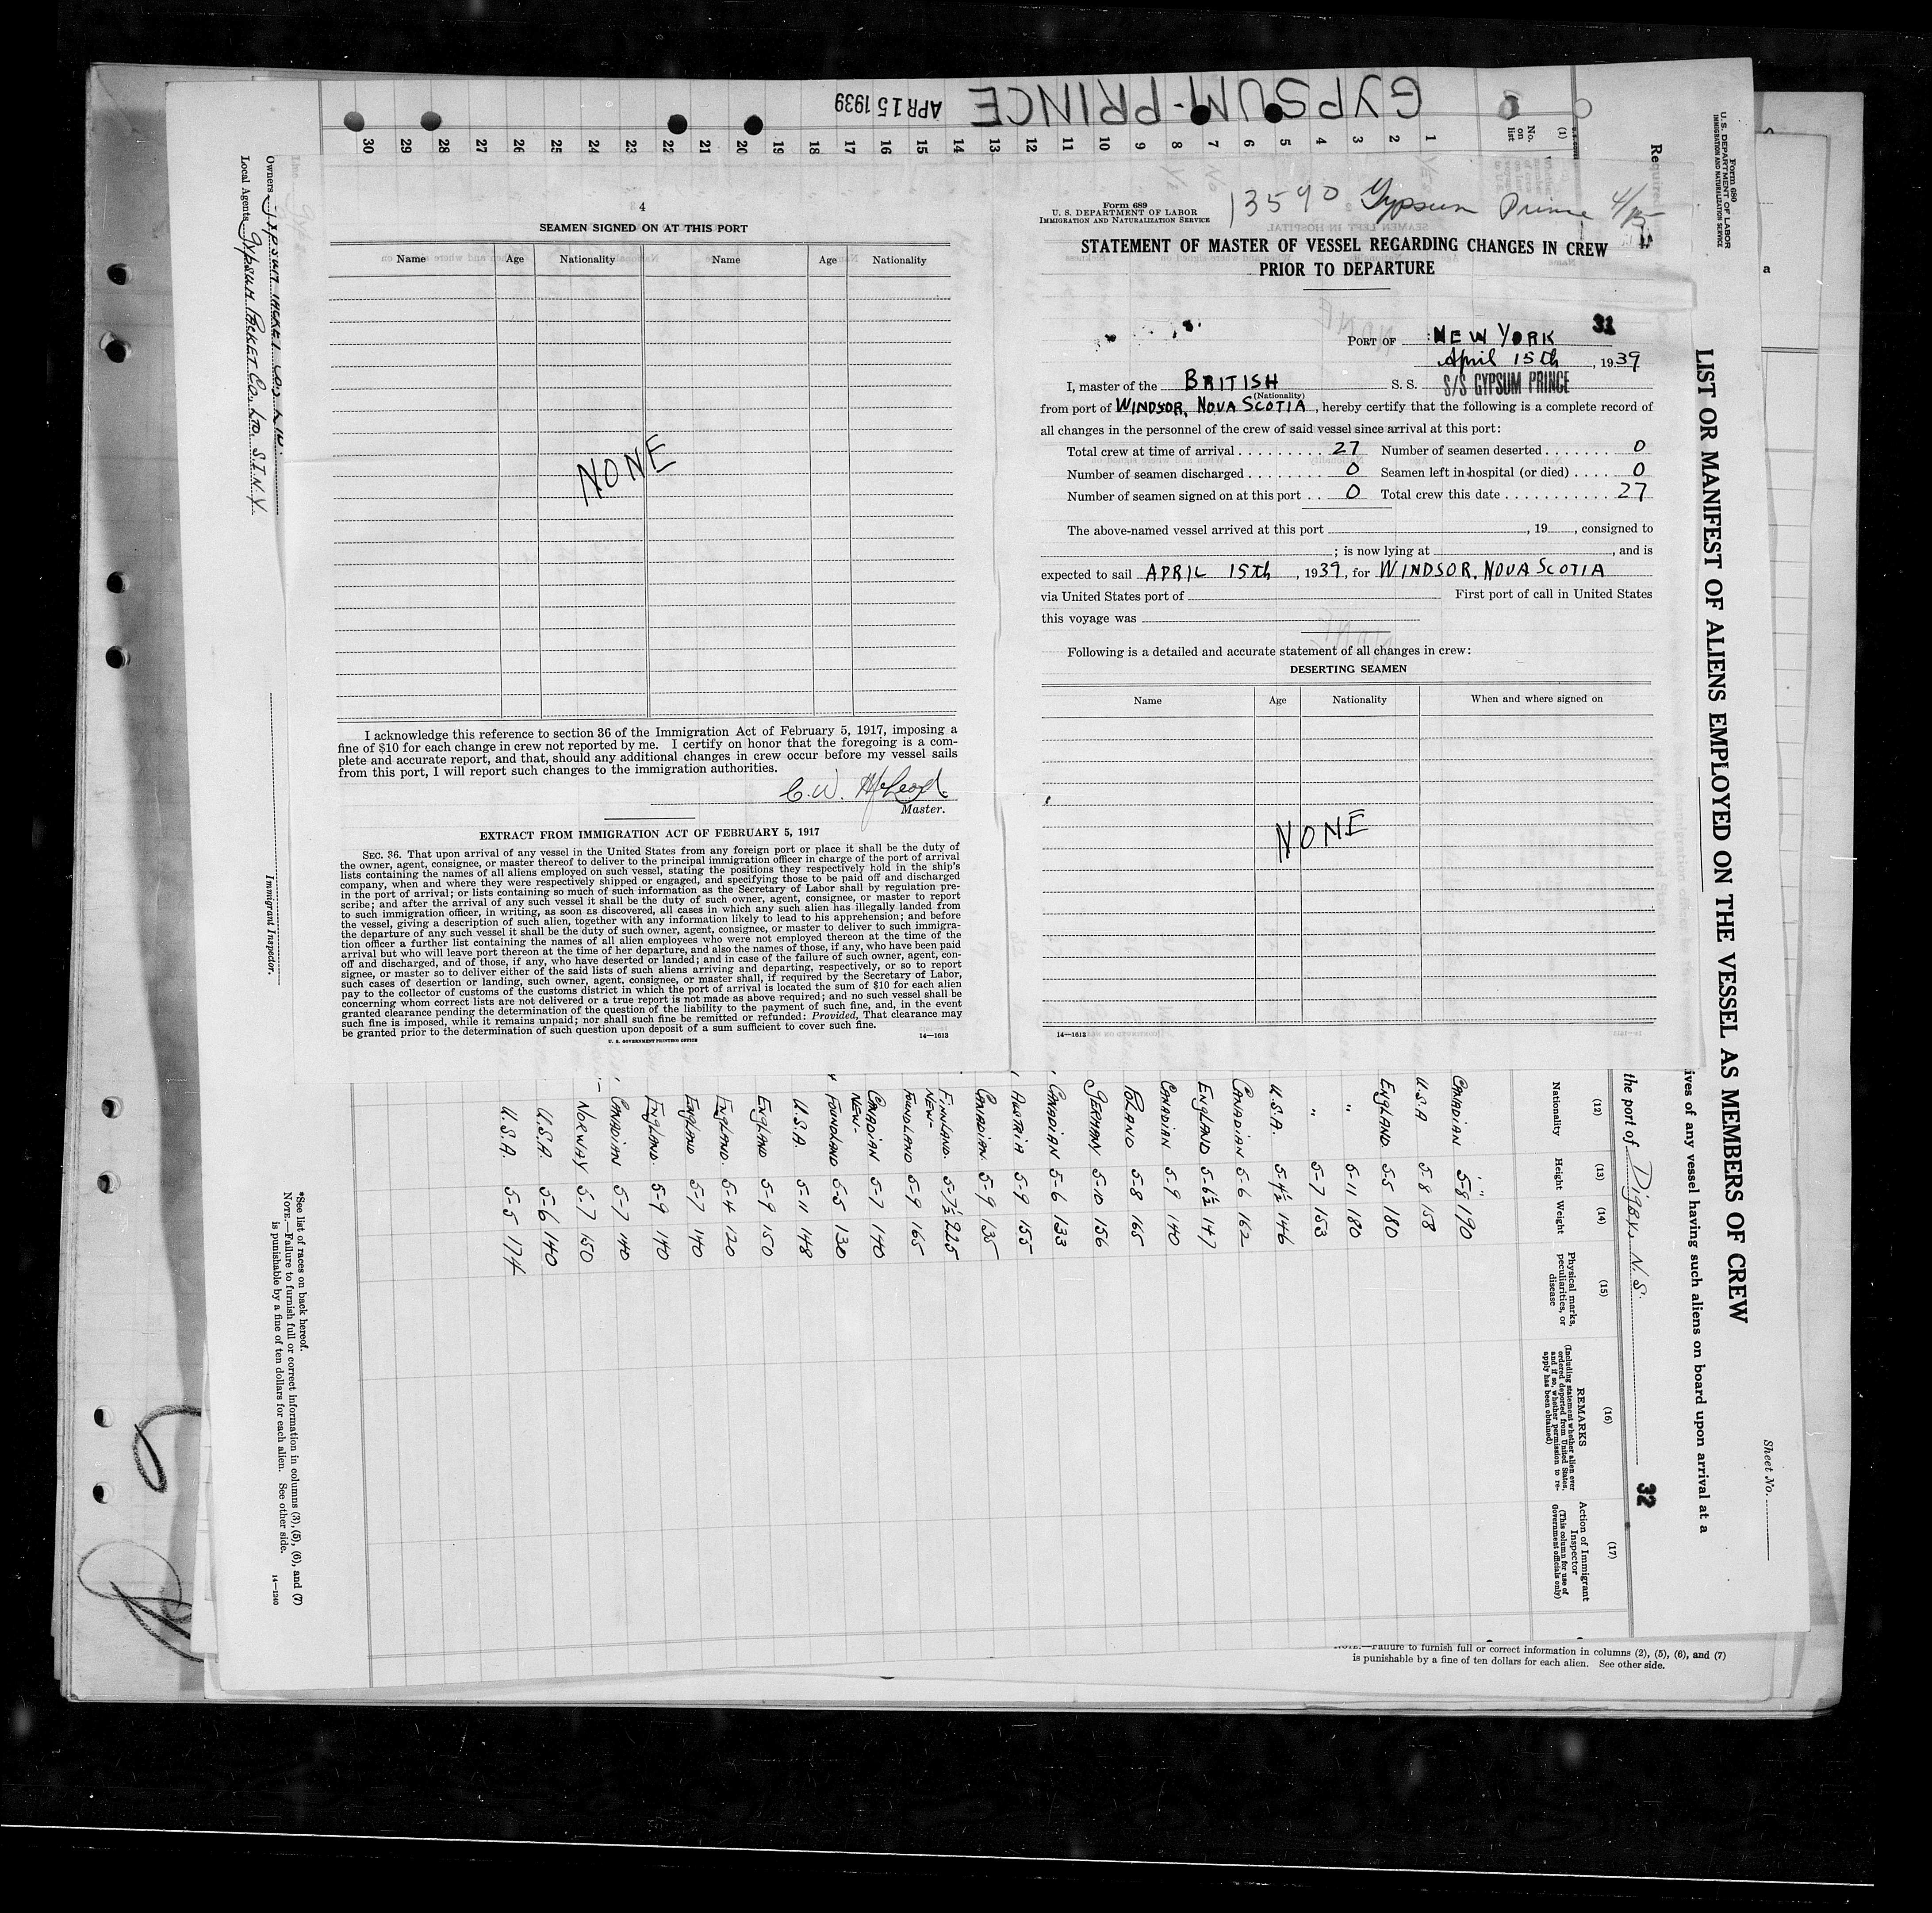 GYPSUM-PRINCE
APR 15 1939
4
SEAMEN SIGNED ON AT THIS PORT
Name Age Nationality Name Age Nationality
NONE
I acknowledge this reference to section 36 of the Immigration Act of February 5, 1917, imposing a
fine of $10 for each change in crew not reported by me. I certify on honor that the foregoing is a com-
plete and accurate report, and that, should any additional changes in crew occur before my vessel sails
from this port, I will report such changes to the immigration authorities.
C. W. McLeod
Master.
EXTRACT FROM IMMIGRATION ACT OF FEBRUARY 5, 1917
SEC. 36. That upon arrival of any vessel in the United States from any foreign port or place it shall be the duty of
the owner, agent, consignee, or master thereof to deliver to the principal immigration officer in charge of the port of arrival
lists containing the names of all aliens employed on such vessel, stating the positions they respectively hold in the ship's
company, when and where they were respectively shipped or engaged, and specifying those to be paid off and discharged
in the port of arrival; or lists containing so much of such information as the Secretary of Labor shall by regulation pre-
scribe; and after the arrival of any such vessel it shall be the duty of such owner, agent, consignee, or master to report
to such immigration officer, in writing, as soon as discovered, all cases in which any such alien has illegally landed from
the vessel, giving a description of such alien, together with any information likely to lead to his apprehension; and before
the departure of any such vessel it shall be the duty of such owner, agent, consignee, or master to deliver to such immigra-
tion officer a further list containing the names of all alien employees who were not employed thereon at the time of the
arrival but who will leave port thereon at the time of her departure, and also the names of those, if any, who have been paid
off and discharged, and of those, if any, who have deserted or landed; and in case of the failure of such owner, agent, con-
signee, or master so to deliver either of the said lists of such aliens arriving and departing, respectively, or so to report
such cases of desertion or landing, such owner, agent, consignee, or master shall, if required by the Secretary of Labor,
pay to the collector of customs of the customs district in which the port of arrival is located the sum of $10 for each alien
concerning whom correct lists are not delivered or a true report is not made as above required; and no such vessel shall be
granted clearance pending the determination of the question of the liability to the payment of such fine, and, in the event
such fine is imposed, while it remains unpaid; nor shall such fine be remitted or refunded: Provided, That clearance may
be granted prior to the determination of such question upon deposit of a sum sufficient to cover such fine.
U. S. GOVERNMENT PRINTING OFFICE 14—1613
Form 689
U. S. DEPARTMENT OF LABOR
IMMIGRATION AND NATURALIZATION SERVICE
13590 Gypsum Prince 4/15
STATEMENT OF MASTER OF VESSEL REGARDING CHANGES IN CREW
PRIOR TO DEPARTURE
31
PORT OF NEW YORK
April 15th, 1939
I, master of the BRITISH S. S. S/S GYPSUM PRINCE
(Nationality)
from port of WINDSOR, NOVA SCOTIA, hereby certify that the following is a complete record of
all changes in the personnel of the crew of said vessel since arrival at this port:
Total crew at time of arrival 27 Number of seamen deserted 0
Number of seamen discharged 0 Seamen left in hospital (or died) 0
Number of seamen signed on at this port 0 Total crew this date 27
The above-named vessel arrived at this port , 19 , consigned to
; is now lying at , and is
expected to sail APRIL 15th, 1939, for WINDSOR, NOVA SCOTIA
via United States port of First port of call in United States
this voyage was
Following is a detailed and accurate statement of all changes in crew:
DESERTING SEAMEN
Name Age Nationality When and where signed on
NONE
14—1613
Form 680
U. S. DEPARTMENT OF LABOR
IMMIGRATION AND NATURALIZATION SERVICE
Sheet No.
LIST OR MANIFEST OF ALIENS EMPLOYED ON THE VESSEL AS MEMBERS OF CREW
Required
ives of any vessel having such aliens on board upon arrival at a
the port of DIGBY, N. S. 32
(1) (12) (13) (14) (15) (16) (17)
No. on list
Nationality Height Weight
Physical marks, peculiarities, or disease
REMARKS
(Including statement whether alien ever ordered deported from United States, and if so, whether permission to re-apply has been obtained)
Action of Immigrant Inspector
(This column for use of Government officials only)
1 CANADIAN 5-8 190
2 U.S.A 5-8 158
3 ENGLAND. 5-5 180
4 " 5-11 180
5 " 5-7 153
6 U.S.A. 5-4½ 146
7 CANADIAN 5-6 162
8 ENGLAND 5-6½ 147
9 CANADIAN 5-9 140
10 POLAND 5-8 165
11 GERMANY 5-10 156
12 CANADIAN 5-6 133
13 AUSTRIA 5-9 155
14 CANADIAN. 5-9 135
15 FINNLAND. 5-7½ 225
16 NEW-FOUNDLAND 5-9 165
17 CANADIAN 5-7 140
18 NEW-FOUNDLAND 5-5 130
19 U.S.A. 5-11 148
20 ENGLAND 5-9 150
21 ENGLAND. 5-4 120
22 ENGLAND 5-7 140
23 ENGLAND. 5-9 140
24 CANADIAN 5-7 140
25 NORWAY 5-7 150
26 U.S.A. 5-6 140
27 U.S.A. 5-5 174
28
29
30
Owners
Local Agents GYPSUM PACKET CO., LTD. S.I.N.Y.
Immigrant Inspector.
*See list of races on back hereof.
NOTE.—Failure to furnish full or correct information in columns (3), (5), (6), and (7)
is punishable by a fine of ten dollars for each alien. See other side.
14—1240
NOTE.—Failure to furnish full or correct information in columns (2), (5), (6), and (7)
is punishable by a fine of ten dollars for each alien. See other side.